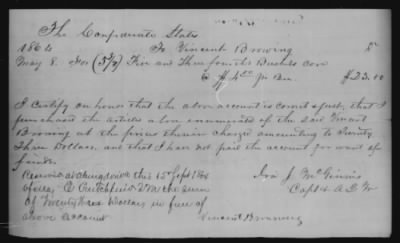 The Confederate States
1864 To Vincent Browing Dr
May 8. For (5 3/4) Five and Three fourths Bushels corn
@ $4.00 pr Bu. $23.00
I certify on honor that the above account is correct & just, that I
purchased the articles above enumerated of the said Vincent
Browing at the prices therein charged amounting to Twenty
Three Dollars, and that I have not paid the account for want of
funds.
Ira J. McGinnis
Capt & A.Q.M.
Received at this 15 Sept 1864
of E Crutchfield the sum
of Twenty three Dollars in full of
above account
Vincent Browning